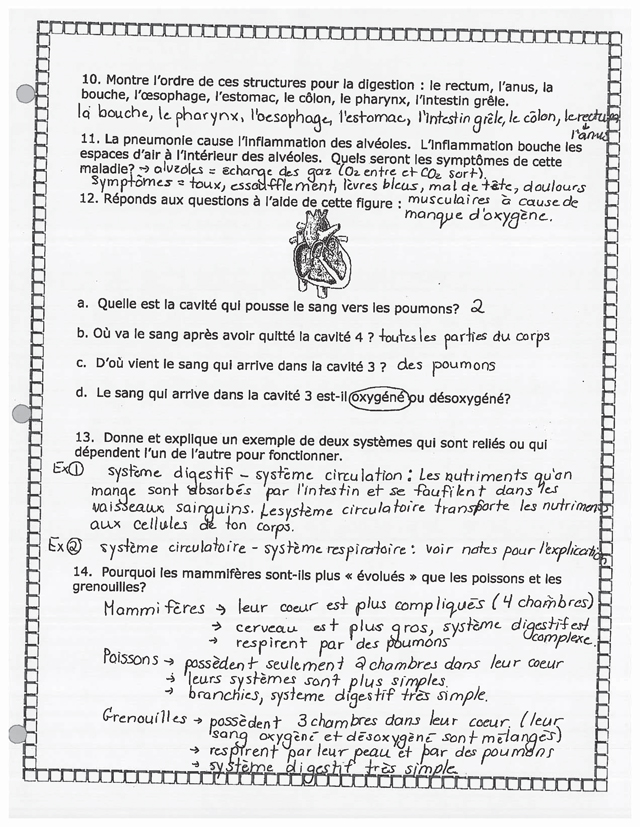 10. Montre l'ordre de ces structures pour la digestion : le rectum, l'anus, la
bouche, l'œsophage, l'estomac, le côlon, le pharynx, l'intestin grêle.
la bouche, le pharynx, l'oesophage, l'estomac, l'intestin grêle, le côlon, le rectum
l'anus
11. La pneumonie cause l'inflammation des alvéoles. L'inflammation bouche les
espaces d'air à l'intérieur des alvéoles. Quels seront les symptômes de cette
maladie? → alvéoles = échange des gaz (O₂ entre et CO₂ sort).
Symptômes = toux, essoufflement, lèvres bleus, mal de tête, douleurs
12. Réponds aux questions à l'aide de cette figure : musculaires à cause de
manque d'oxygène.
a. Quelle est la cavité qui pousse le sang vers les poumons? 2
b. Où va le sang après avoir quitté la cavité 4 ? toutes les parties du corps
c. D'où vient le sang qui arrive dans la cavité 3 ? des poumons
d. Le sang qui arrive dans la cavité 3 est-il oxygéné ou désoxygéné?
13. Donne et explique un exemple de deux systèmes qui sont reliés ou qui
dépendent l'un de l'autre pour fonctionner.
Ex① système digestif - système circulation : Les nutriments qu'on
mange sont absorbés par l'intestin et se faufilent dans les
vaisseaux sainguins. Le système circulatoire transporte les nutriments
aux cellules de ton corps.
Ex② système circulatoire - système respiratoire : voir notes pour l'explication
14. Pourquoi les mammifères sont-ils plus « évolués » que les poissons et les
grenouilles?
Mammifères → leur coeur est plus compliqués (4 chambres)
→ cerveau est plus gros, système digestif est
complexe.
→ respirent par des poumons
Poissons → possèdent seulement 2 chambres dans leur coeur
→ leurs systèmes sont plus simples.
→ branchies, systeme digestif très simple.
Grenouilles → possèdent 3 chambres dans leur coeur. (leur
sang oxygéné et désoxygéné sont mélangés)
→ respirent par leur peau et par des poumons
→ système digestif très simple